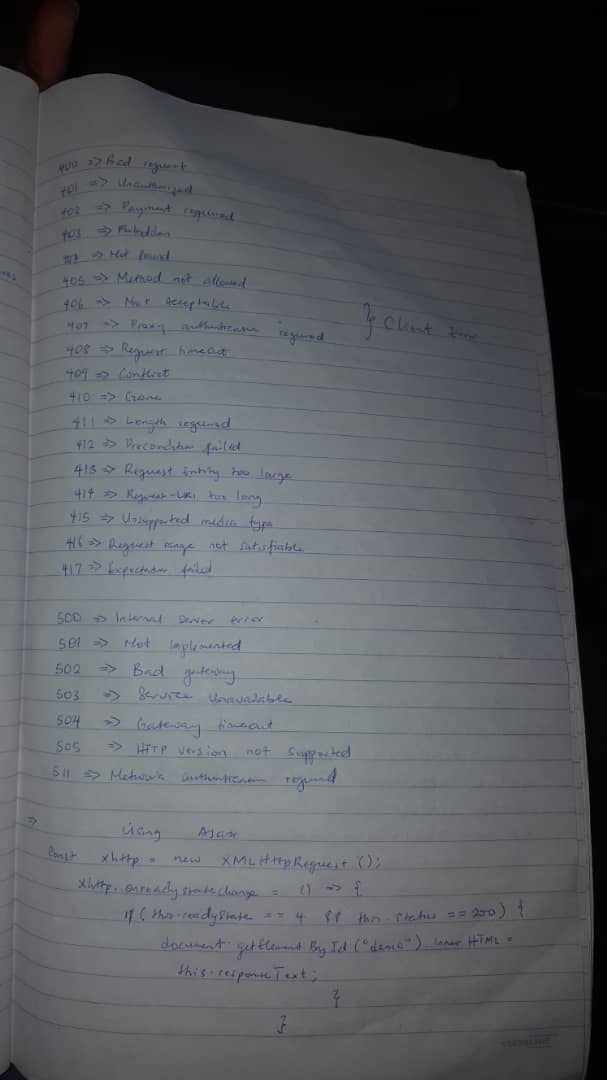 400 => Bad request
401 => Unauthorized
402 => Payment required
403 => Forbidden
404 => Not Found
405 => Method not allowed
406 => Not Acceptable
407 => Proxy authentication required } Client Error
408 => Request timeout
409 => Conflict
410 => Gone
411 => Length required
412 => Precondition failed
413 => Request Entity too large
414 => Request-URI too long
415 => Unsupported media type
416 => Request range not satisfiable
417 => Expectation failed
500 => Internal Server error
501 => Not Implemented
502 => Bad gateway
503 => Service Unavailable
504 => Gateway timeout
505 => HTTP version not supported
511 => Network authentication required
=> Using Ajax
Const xhttp = new XMLHttpRequest ();
xhttp.onreadystatechange = () => {
if ( this.readyState == 4 && this.status == 200) {
document.getElementById ("demo") inner HTML =
this.responseText;
}
}